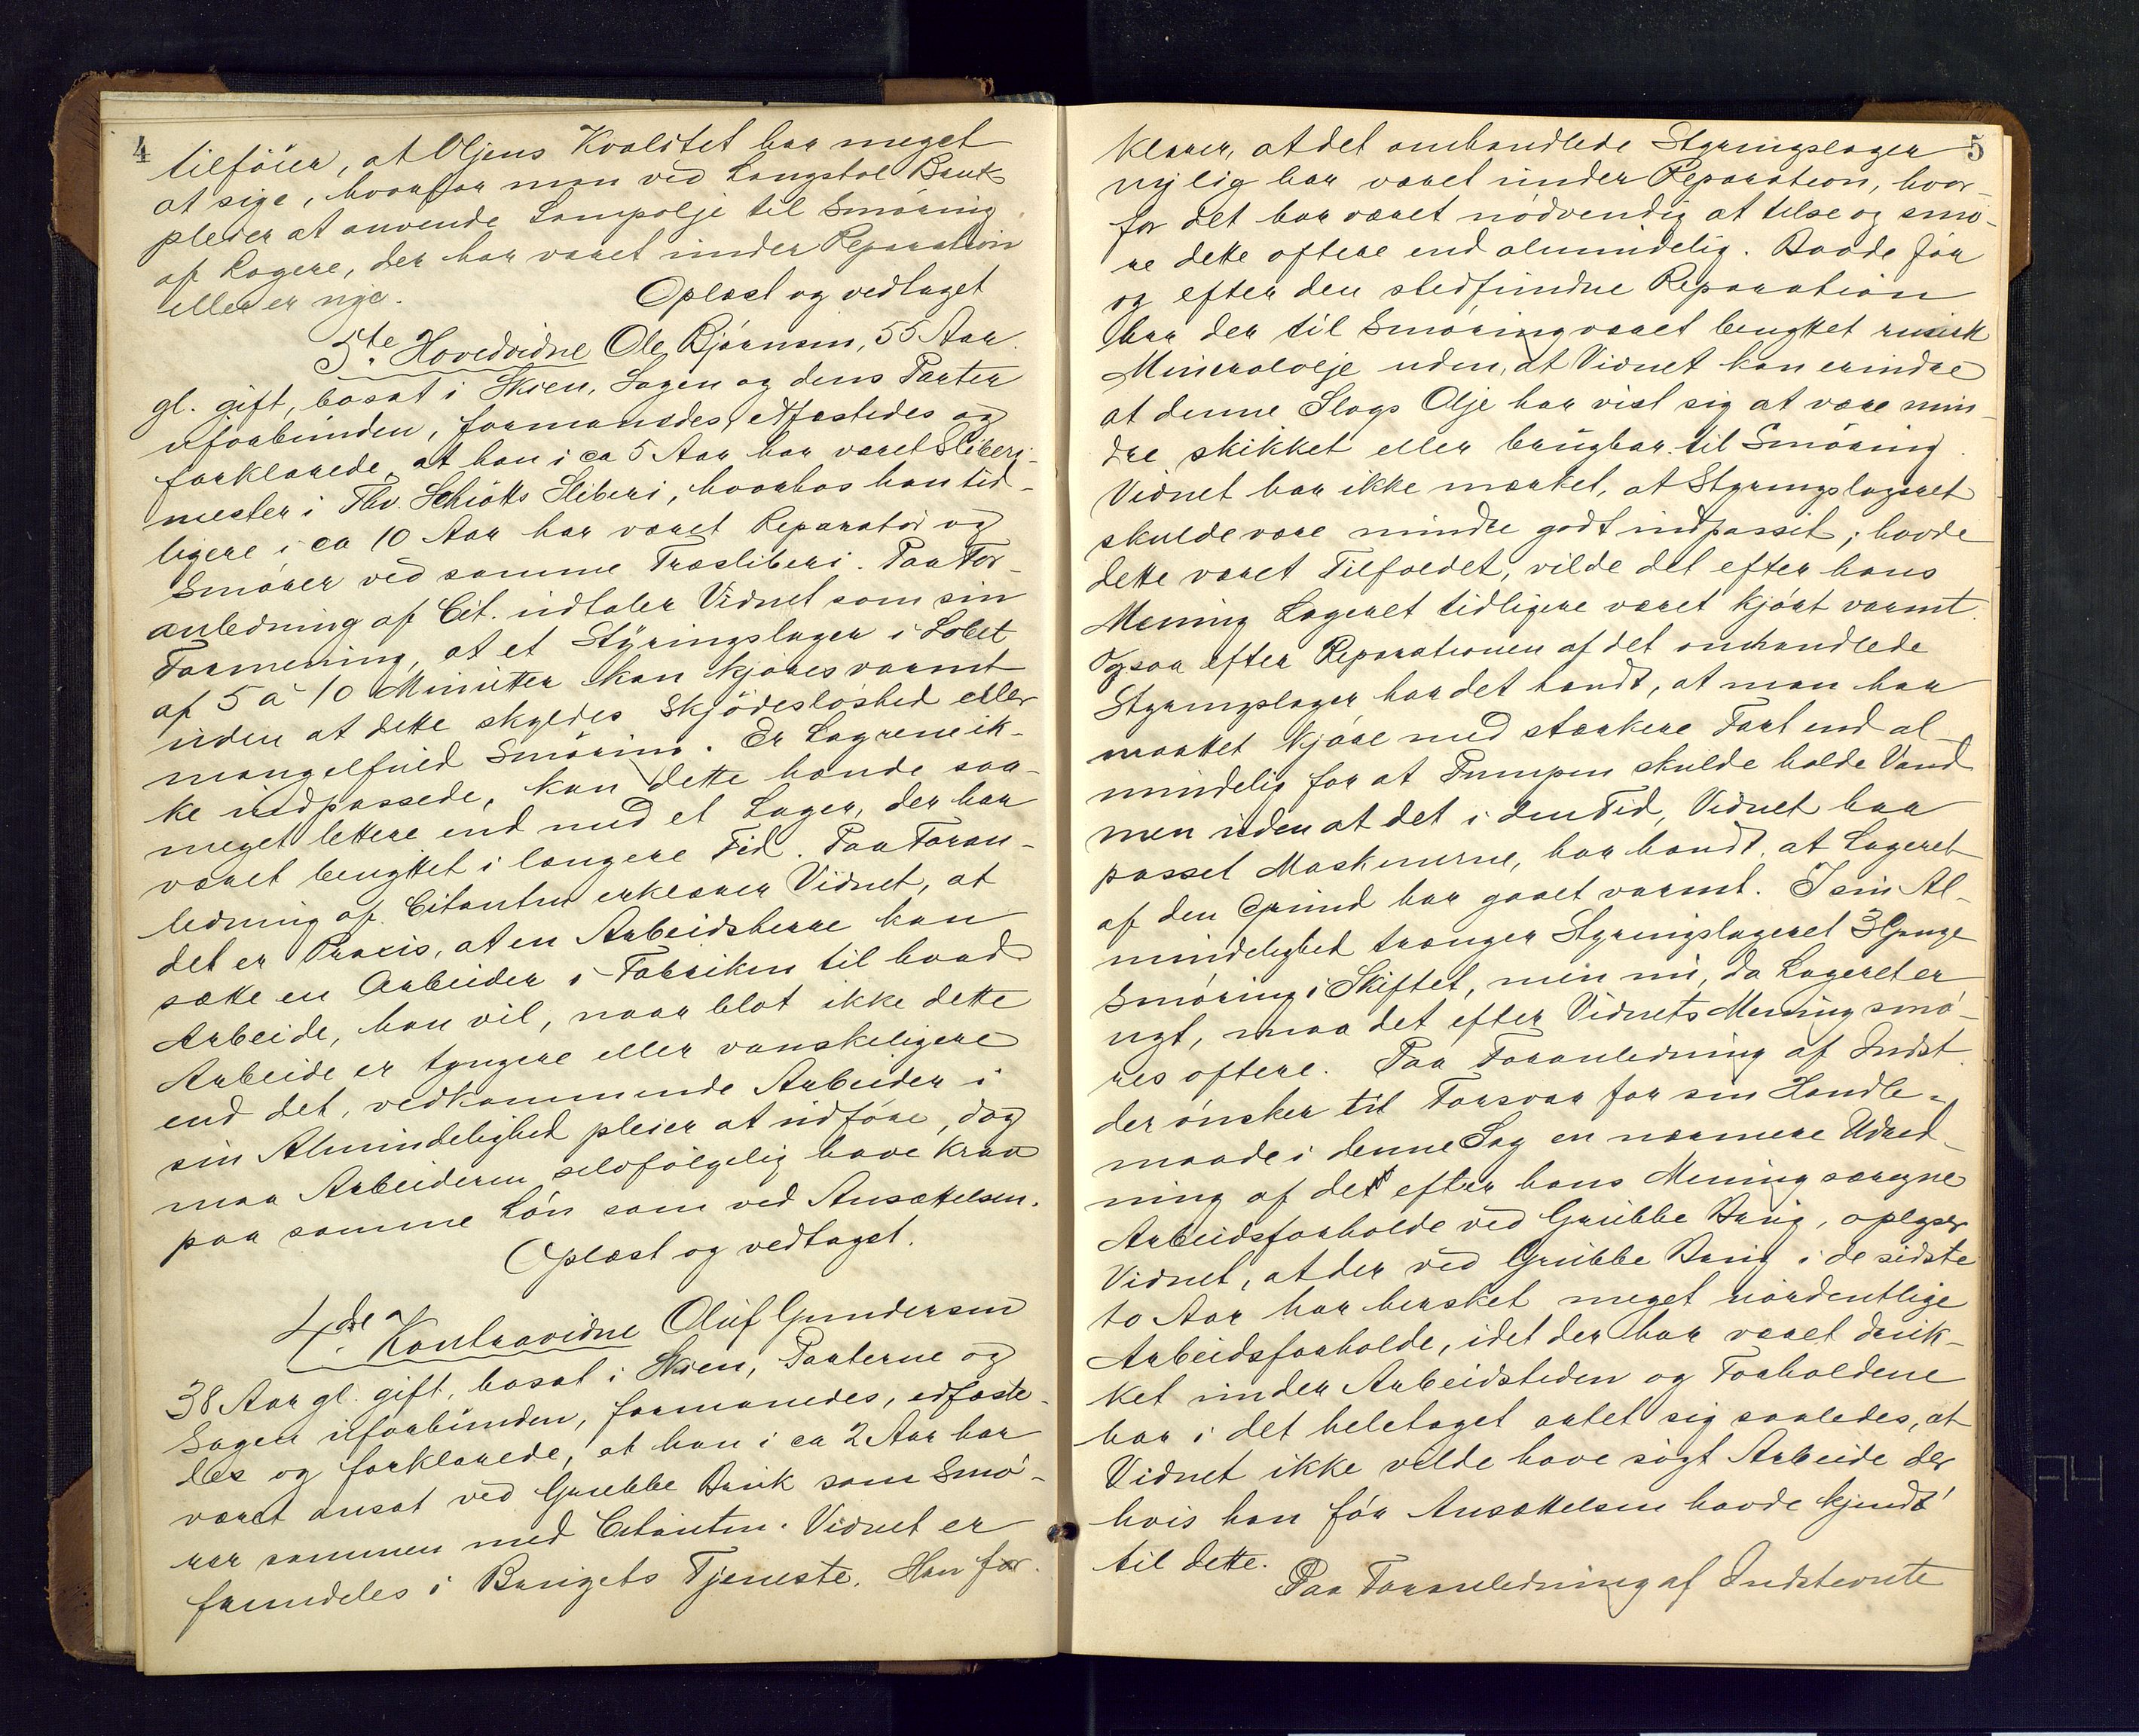 4
tilföier, at Oljens Kvalitet har meget
at sige, hvorfor man ved Langstol Bruk
pleier at anvende Lampolje til Smöring
af Lagere, der har været under Reparation
eller er nye. Oplæst og vedtaget
5te Hovedvidne Ole Björnsen, 55 Aar
gl. gift, bosat i Skien, Sagen og dens Parter
uforbunden, formanedes, edfæstedes og
forklarede, at han i ca 5 Aar har været Sliberi-
mester i Thv. Schiötts Sliberi, hvorhos han tid-
ligere i ca 10 Aar har været Reparatör og
Smörer ved samme Træsliberi. Paa For-
anledning af Cit. udtaler Vidnet som sin
Formening, at et Styringslager i Löbet
af 5 à 10 Minutter kan kjöres varmt
uden at dette skyldes Skjödeslöshed eller
mangelfuld Smöring. Er Lagrene ik-
ke indpassede, kan dette hænde saa-
meget lettere end med et Lager, der har
været benyttet i længere Tid. Paa Foran-
ledning af Citanten erklærer Vidnet, at
det er Praxis, at en Arbeidsherre kan
sætte en Arbeider i Fabriken til hvad
Arbeide, han vil, naar blot ikke dette
Arbeide er tyngere eller vanskeligere
end det, vedkommende Arbeider i
sin Almindelighed pleier at udföre, dog
maa Arbeideren selvfölgelig have Krav
paa samme Lön som ved Ansættelsen.
Oplæst og vedtaget.
4de Kontravidne Oluf Gundersen
38 Aar gl. gift, bosat i Skien, Parterne og
Sagen uforbunden, formanedes, edfæste-
des og forklarede, at han i ca 2 Aar har
været ansat ved Grubbe Bruk som Smö-
rer sammen med Citanten. Vidnet er
fremdeles i Brugets Tjeneste. Han for-
5
klarer, at det omhandlede Styringslager
nylig har været under Reparation, hvor-
for det har været nödvendig at tilse og smö-
re dette oftere end almindelig. Baade för
og efter den stedfundne Reparation
har der til Smöring været benyttet russisk
Mineralolje uden, at Vidnet kan erindre
at denne Slags Olje har vist sig at være min-
dre skikket eller brugbar til Smöring.
Vidnet har ikke mærket, at Styringslageret
skulde være mindre godt indpasset; havde
dette været Tilfældet, vilde det efter hans
Mening Lageret tidligere været kjört varmt.
Ogsaa efter Reparationen af det omhandlede
Styringslager har det hændt, at man har
maattet kjöre med stærkere Fart end al-
mindelig for at Pumpen skulde holde Vand
men uden at det i den Tid, Vidnet har
passet Maskinerne, har hændt, at Lageret
af den Grund har gaaet varmt. I sin Al-
mindelighed trænger Styringslageret 3 Gange
Smöring i Skiftet, men nu, da Lageret er
nyt, maa det efter Vidnets Mening smö-
res oftere. Paa Foranledning af Indst.
der önsker til Forsvar for sin Handle-
maade i denne Sag en nærmere Udred-
ning af det efter hans Mening særegne
Arbeidsforholde ved Grubbe Brug, oplyser
Vidnet, at der ved Grubbe Brug i de sidste
to Aar har hersket meget uordentlige
Arbeidsforholde, idet der har været druk-
ket under Arbeidstiden og Forholdene
har i det heletaget artet sig saaledes, at
Vidnet ikke vilde have sögt Arbeide der
hvis han för Ansættelsen havde kjendt
til dette.
Paa Foranledning af Indstevnte